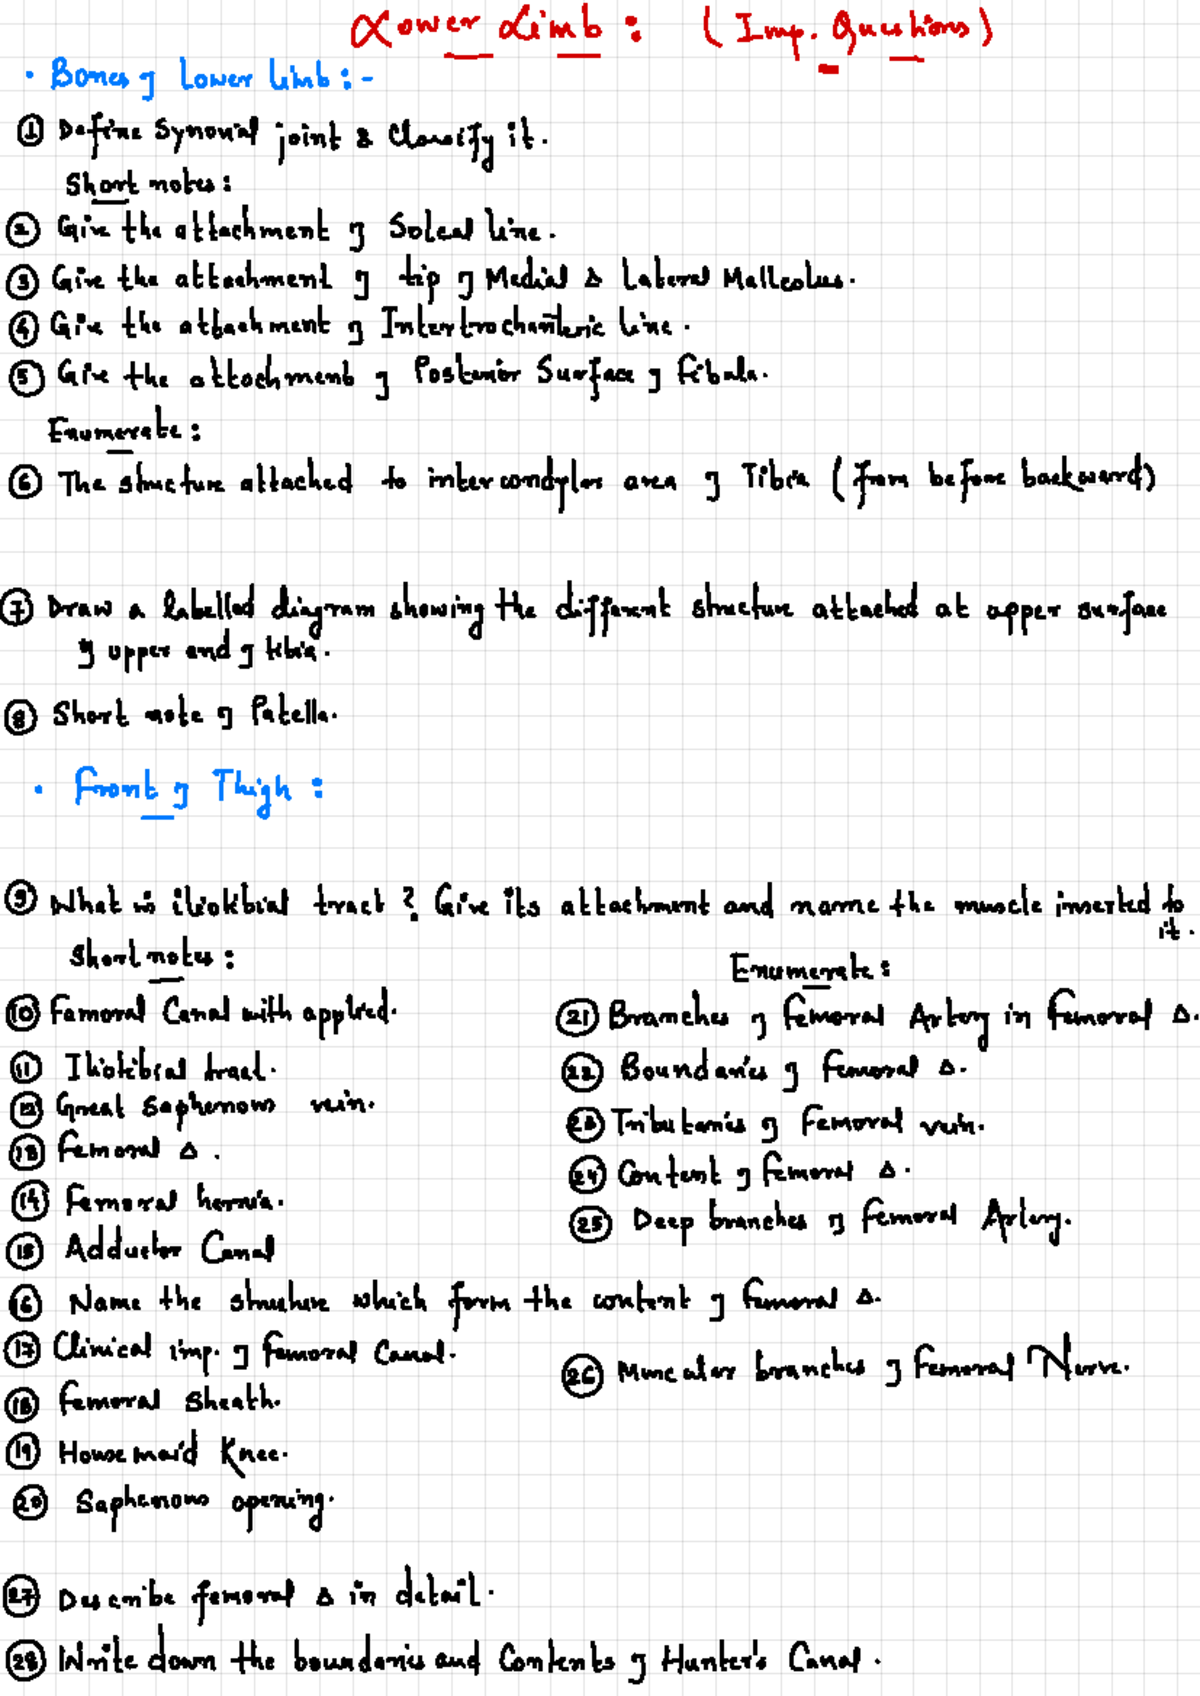 Lower Limb : (Imp. Questions)
• Bones of Lower limb :-
① Define Synovial joint & Classify it.
Short notes :
② Give the attachment of Soleal line.
③ Give the attachment of tip of Medial & Lateral Malleolus.
④ Give the attachment of Intertrochanteric line.
⑤ Give the attachment of Posterior Surface of fibula.
Enumerate :
⑥ The structure attached to intercondylar area of Tibia (from before backward)
⑦ Draw a labelled diagram showing the different structure attached at upper surface
of upper end of tibia.
⑧ Short note of Patella.
• Front of Thigh :
⑨ What is iliotibial tract ? Give its attachment and name the muscle inserted to
it.
Short notes :
⑩ Femoral Canal with applied.
⑪ Iliotibial tract.
⑫ Great Saphenous vein.
⑬ Femoral Δ .
⑭ Femoral hernia.
⑮ Adductor Canal
⑯ Name the structure which form the content of femoral Δ.
⑰ Clinical imp. of femoral Canal.
⑱ Femoral Sheath.
⑲ House maid Knee.
⑳ Saphenous opening.
Enumerate :
㉑ Branches of femoral Artery in femoral Δ.
㉒ Boundaries of femoral Δ.
㉓ Tributaries of Femoral vein.
㉔ Content of femoral Δ.
㉕ Deep branches of femoral Artery.
㉖ Muscular branches of Femoral Nerve.
㉗ Describe femoral Δ in detail.
㉘ Write down the boundaries and Contents of Hunter's Canal.